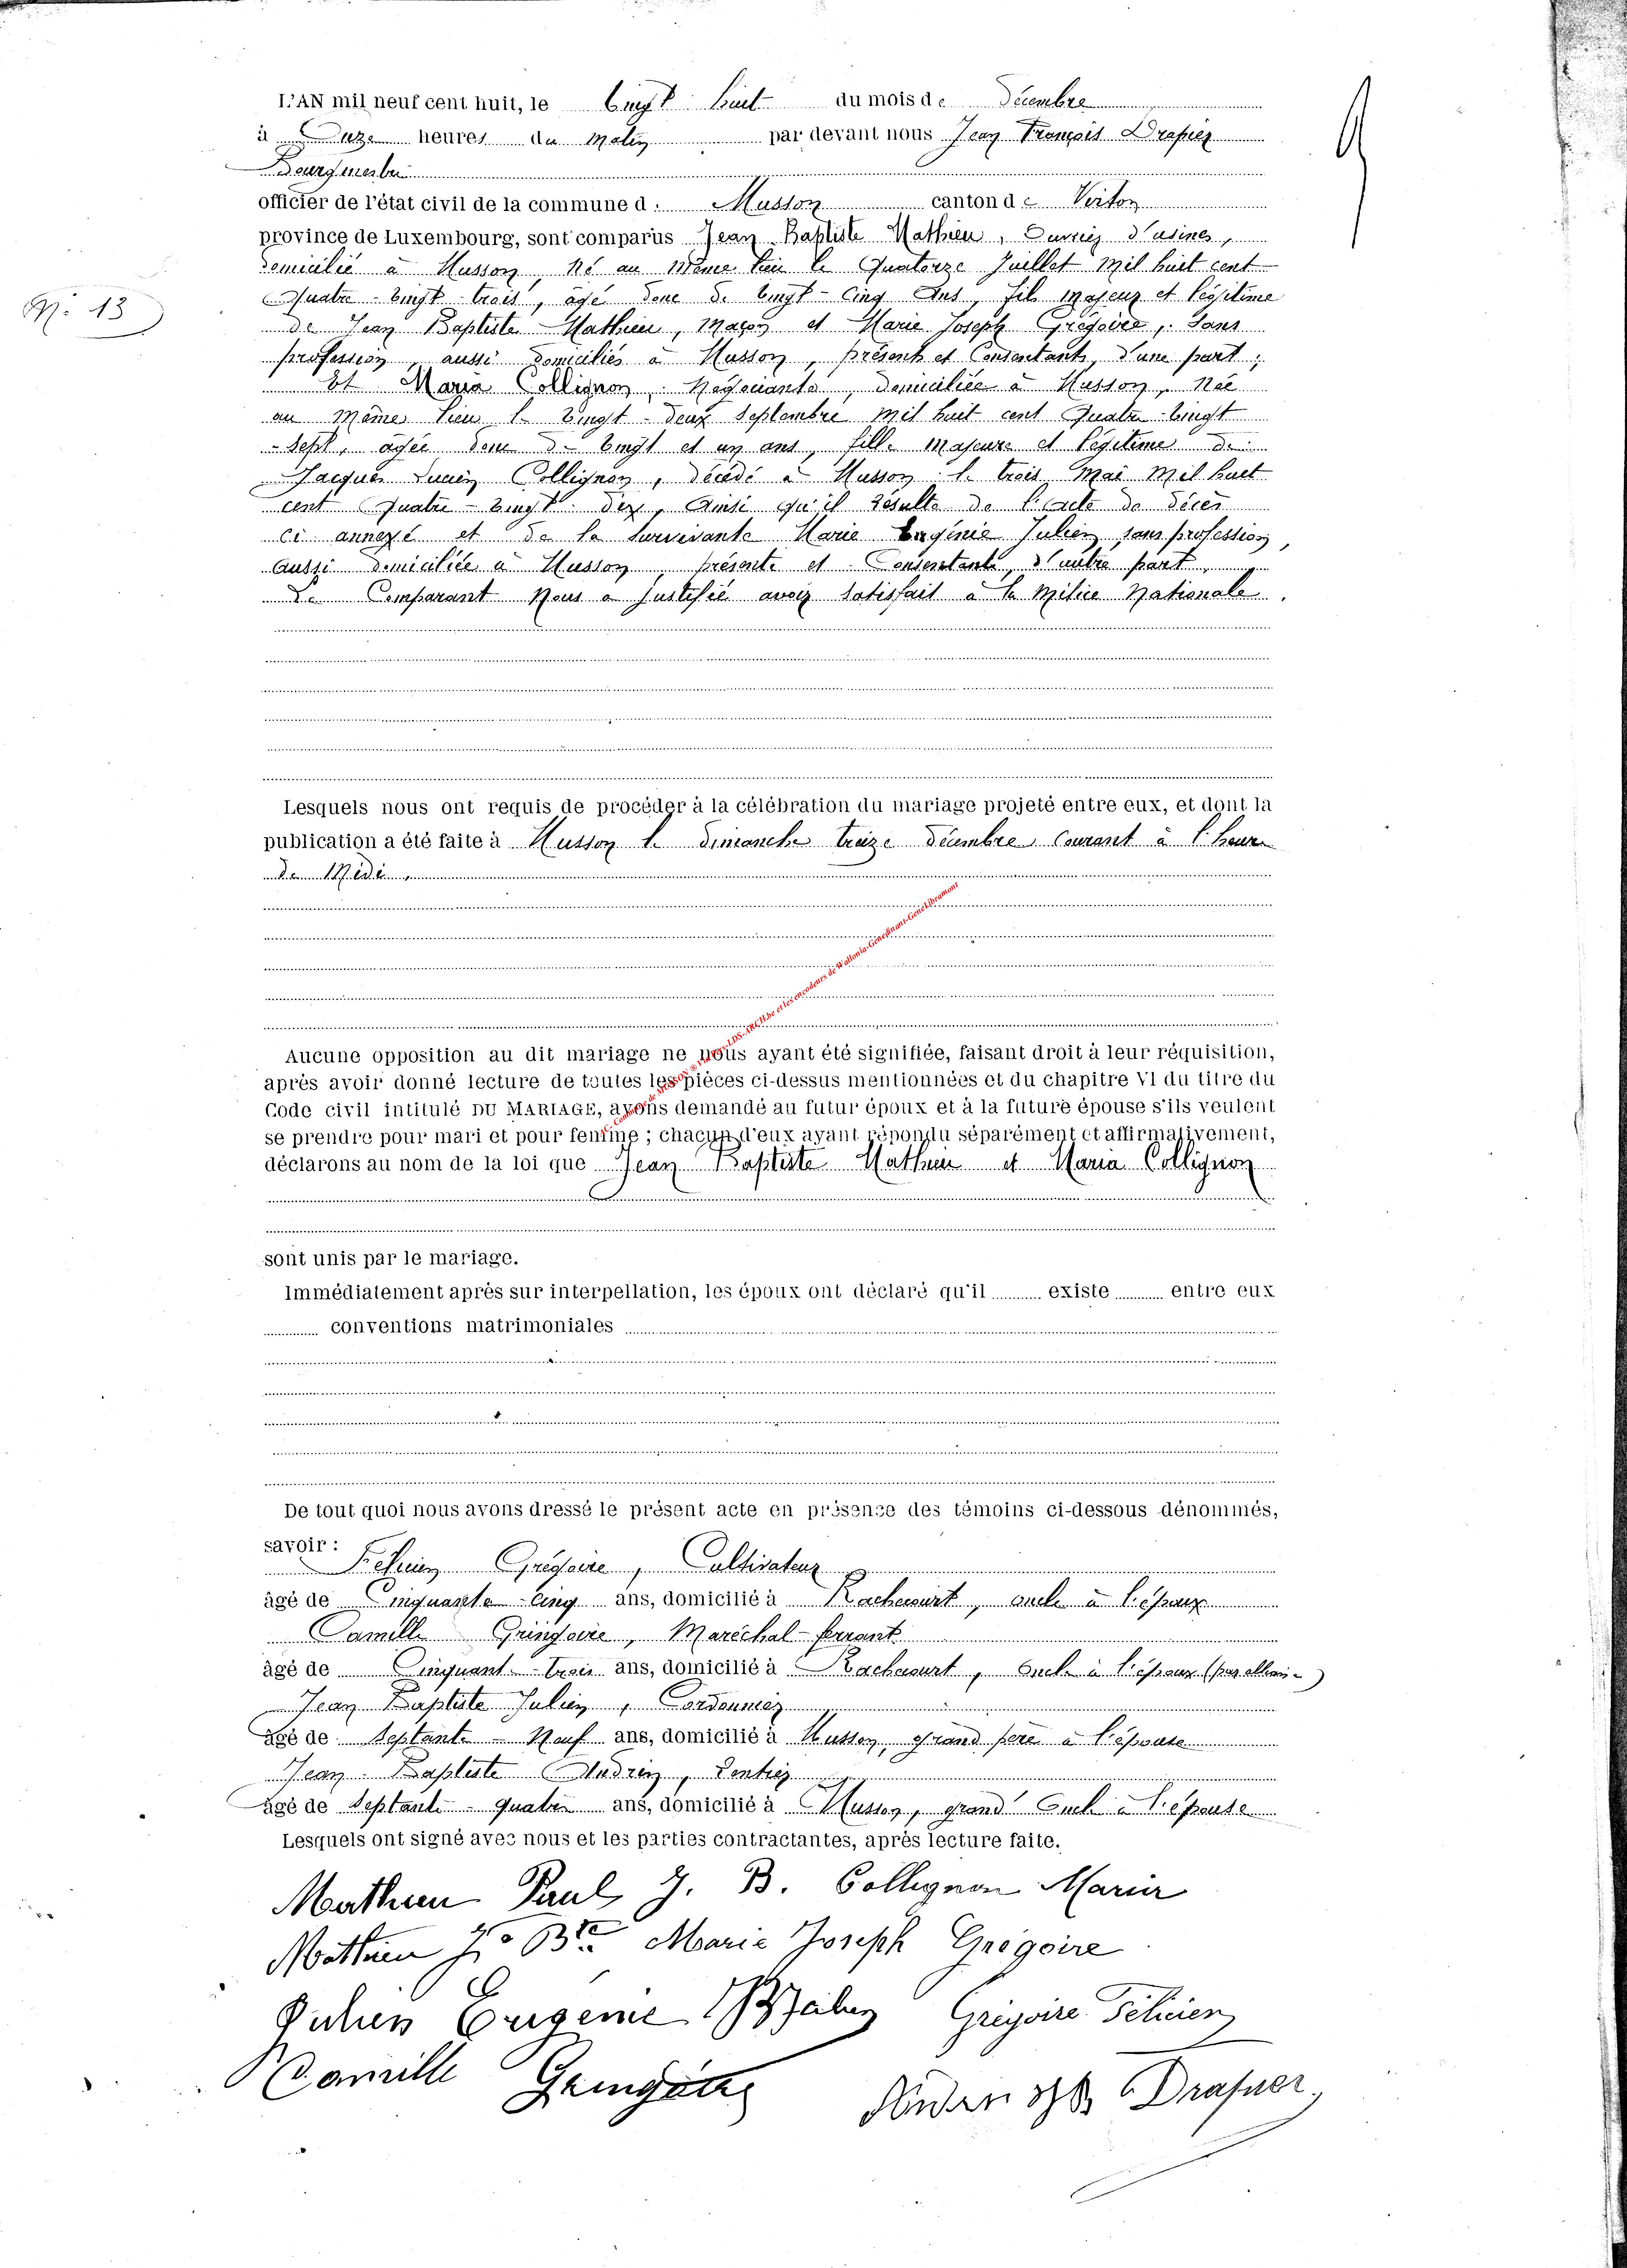 L'AN mil neuf cent huit, le Vingt huit du mois de Décembre
à Onze heures du Matin par devant nous Jean François Drapier
Bourgmestre
officier de l'état civil de la commune d. Musson canton de Virton
province de Luxembourg, sont comparus Jean Baptiste Mathieu, Ouvrier d'usines,
domicilié à Musson, né au Même lieu le Quatorze Juillet Mil huit cent
Quatre-Vingt-trois, âgé donc de Vingt-Cinq Ans, fils Majeur et légitime
N° 13
de Jean Baptiste Mathieu, Maçon et Marie Joseph Grégoire, Sans
profession, aussi domiciliés à Musson, présents et Consentants, d'une part;
Et Maria Collignon, Négociante, domiciliée à Musson, Née
au Même lieu le Vingt-deux Septembre Mil huit cent Quatre-Vingt
-Sept, âgée donc de Vingt et un ans, fille Majeure et légitime de
Jacques Lucien Collignon, décédé à Musson le trois Mai Mil huit
cent Quatre-Vingt dix, Ainsi qu'il résulte de l'acte de décès
ci annexé et de la Survivante Marie Eugénie Julien, sans profession,
aussi domiciliée à Musson, présente et Consentante, d'autre part,
Le Comparant Nous a justifié avoir satisfait à la Milice Nationale.
Lesquels nous ont requis de procéder à la célébration du mariage projeté entre eux, et dont la
publication a été faite à Musson le dimanche treize décembre Courant à l'heure
de Midi,
Aucune opposition au dit mariage ne nous ayant été signifiée, faisant droit à leur réquisition,
après avoir donné lecture de toutes les pièces ci-dessus mentionnées et du chapitre VI du titre du
Code civil intitulé DU MARIAGE, avons demandé au futur époux et à la future épouse s'ils veulent
se prendre pour mari et pour femme ; chacun d'eux ayant répondu séparément et affirmativement,
déclarons au nom de la loi que Jean Baptiste Mathieu et Maria Collignon
sont unis par le mariage.
Immédiatement après sur interpellation, les époux ont déclaré qu'il existe entre eux
conventions matrimoniales
De tout quoi nous avons dressé le présent acte en présence des témoins ci-dessous dénommés,
savoir :
Félicien Grégoire, Cultivateur
âgé de Cinquante-Cinq ans, domicilié à Rachecourt, oncle à l'époux
Camille Gringoire, Maréchal-ferrant
âgé de Cinquante-trois ans, domicilié à Rachecourt, Oncle à l'époux (par allian-
Jean Baptiste Julien, Cordonnier
âgé de Septante-Neuf ans, domicilié à Musson, grand père à l'épouse
Jean-Baptiste Rentier
âgé de Septante-quatre ans, domicilié à Musson, grand Oncle à l'épouse
Lesquels ont signé avec nous et les parties contractantes, après lecture faite.
Mathieu Paul J. B. Collignon Maria
Mathieu Jn Bte Marie Joseph Grégoire
Julien Eugenie Grégoire Félicien
Camille Drapier